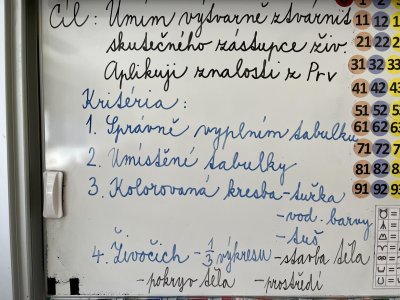 Cíl: Umím výtvarně ztvárnit
skutečného zástupce živ.
Aplikuji znalosti z Prv
Kritéria:
1. Správně vyplním tabulku
2. Umístění tabulky
3. Kolorovaná kresba - tužka
- vod. barvy
- tuš
4. Živočich - 1/3 výkresu - stavba těla
- pokryv těla - prostředí
1 2 3
11 12 13
21 22 23
31 32 33
41 42 43
51 52 53
61 62 63
71 72 73
81 82 83
91 92 93